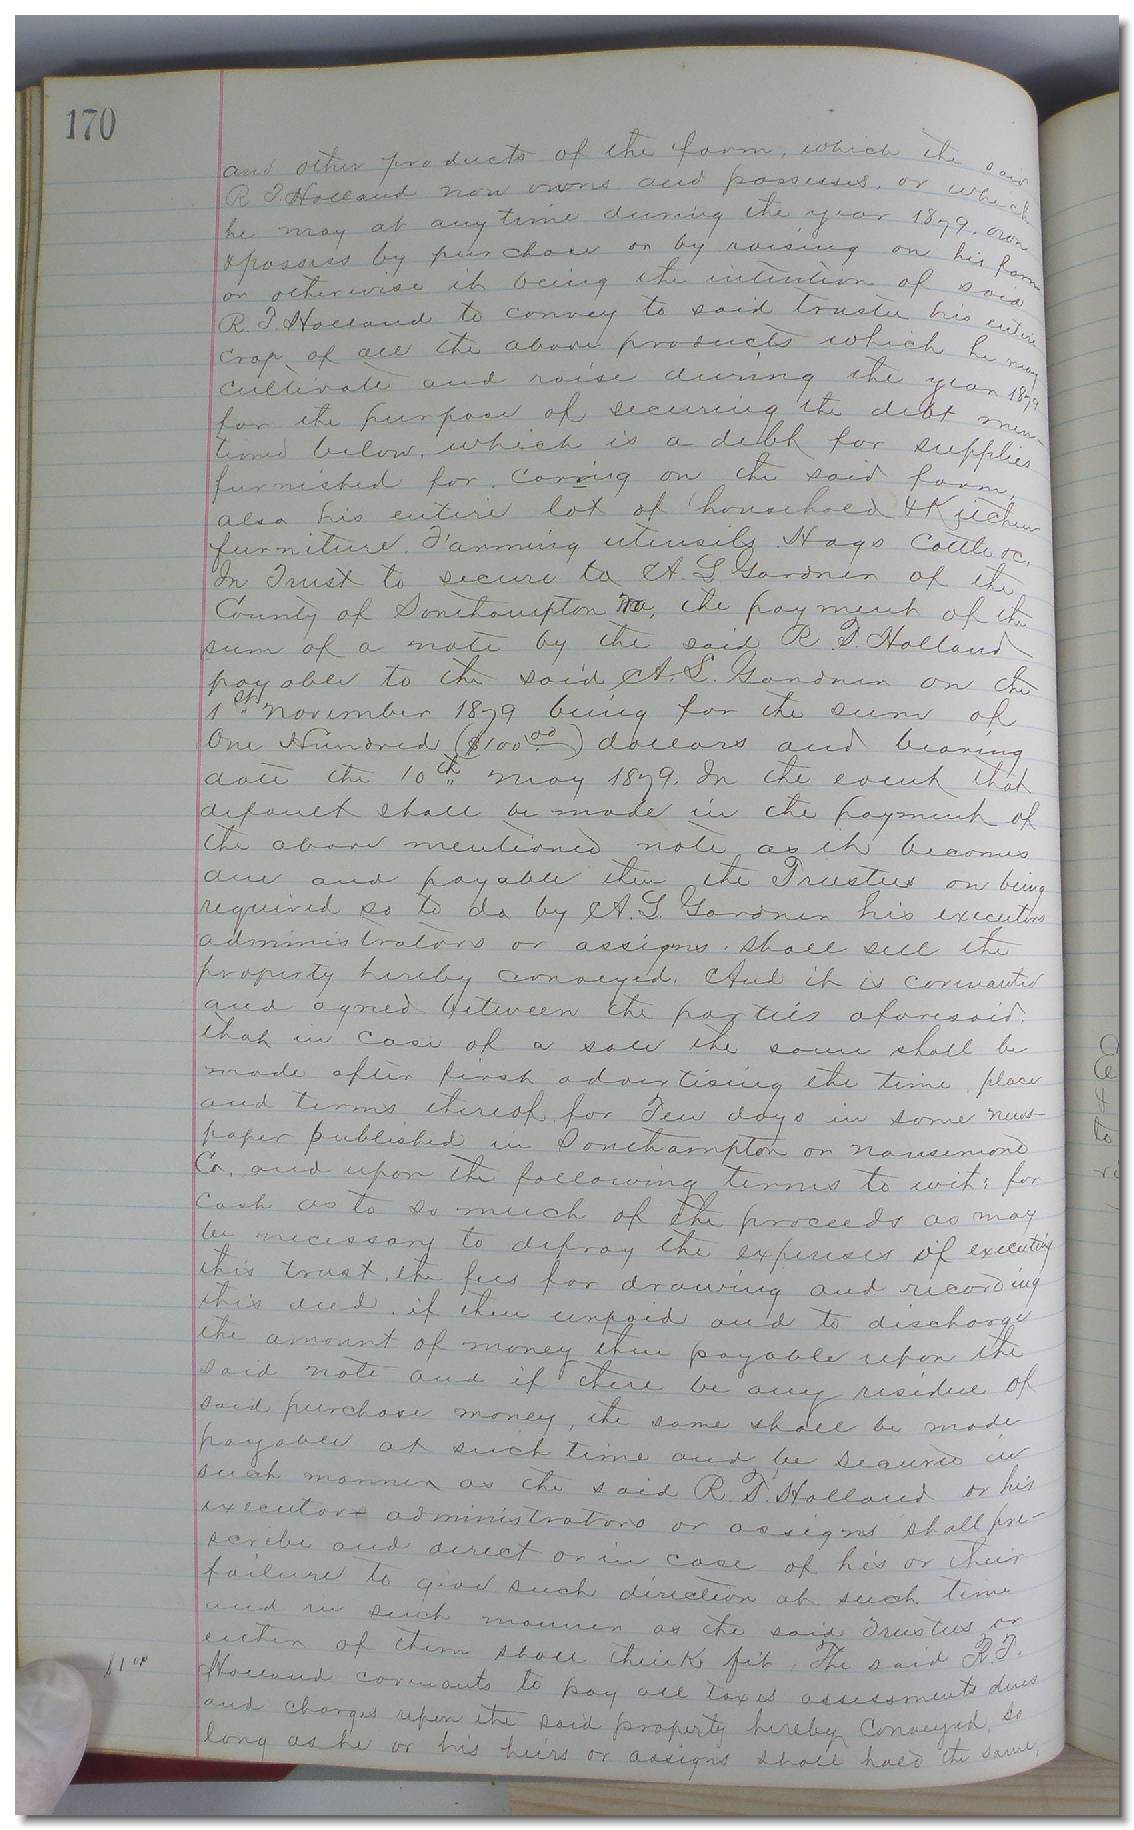 170
and other products of the farm, which the said
R. T. Holland now owns and possesses, or which
he may at any time during the year 1879. own
& possess by purchase or by raising on his farm
or otherwise it being the intention of said
R. T. Holland to convey to said trustee his entire
crop of all the above products which he may
cultivate and raise during the year 1879
for the purpose of securing the debt men-
tioned below, which is a debt for supplies
furnished for caring on the said farm,
also his entire lot of household & Kitchen
furniture. Farming utensils Hogs Cattle &c.
In Trust to secure to A. L. Gardner of the
County of Southampton Va, the payment of the
sum of a note by the said R. T. Holland
payable to the said A. L. Gardner on the
1st november 1879 being for the sum of
One Hundred ($100.00) dollars and bearing
date the 10th may 1879. In the event that
default shall be made in the payment of
the above mentioned note as it becomes
due and payable then the Trustees on being
required so to do by A. L. Gardner his executors
administrators or assigns. shall sell the
property hereby conveyed. And it is covenanted
and agreed between the parties aforesaid.
that in case of a sale the same shall be
made after first advertising the time place
and terms thereof for Ten days in some news-
paper published in Southampton or nansemond
Co. and upon the following terms to wit: for
Cash as to so much of the proceeds as may
be necessary to defray the expenses of executing
this trust. the fees for drawing and recording
this deed. if then unpaid and to discharge
the amount of money then payable upon the
said note and if there be any residue of
said purchase money, the same shall be made
payable at such time and be secured in
such manner as the said R. T. Holland or his
executors administrators or assigns shall pre-
scribe and direct or in case of his or their
failure to give such direction at such time
and in such manner as the said Trustees or
either of them shall think fit. The said R. T.
Holland covenants to pay all taxes assessments dues
and charges upon the said property hereby Conveyed, so
long as he or his heirs or assigns shall hold the same,